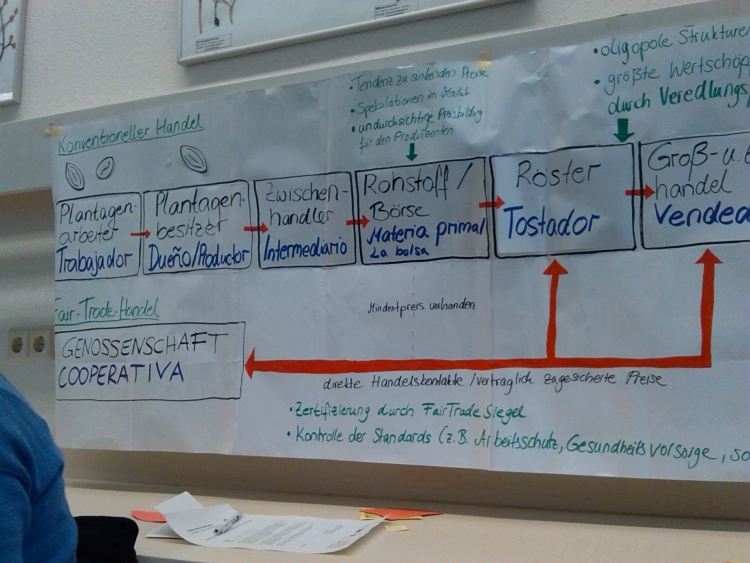 Konventioneller Handel
• Tendenz zu sinkenden Preise
• Spekulationen im Markt
• undurchsichtige Preisbildung
für den Produzenten
• oligopole Strukturen
• größte Wertschöp
durch Veredlungs
Plantagen-
arbeiter
Trabajador
Plantagen-
besitzer
Dueño/Productor
Zwischen-
händler
Intermediario
Rohstoff/
Börse
Materia prima/
La bolsa
Röster
Tostador
Groß- u. E
handel
Vended
Fair-Trade-Handel
GENOSSENSCHAFT
COOPERATIVA
Mindestpreis vorhanden
direkte Handelskontakte / vertraglich zugesicherte Preise
• Zertifizierung durch FairTrade Siegel
• Kontrolle der Standards (z.B. Arbeitsschutz, Gesundheitsvorsorge, so